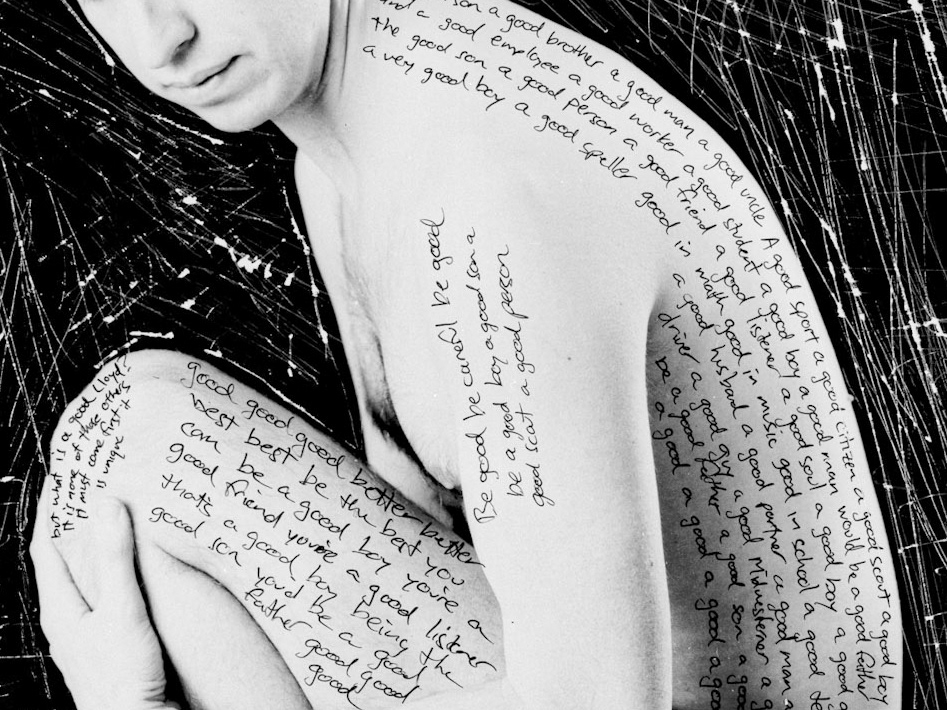 son a good brother a good man a good uncle A good sport a good citizen a good scout a good boy
and a good employee a good worker a good student a good boy a good man would be a good father
the good son a good person a good friend a good listener a good soul a good boy a good
a very good boy a good speller good in math good in music good in school a good
a good husband a good partner a good man a
driver a good guy a good Midwesterner a
be a good father a good son a
a good a good a
Be good be careful be good
be a good boy a good son a
good scout a good person
but what is a good Lloyd?
It is none of those others
It must come first it
is unique
good good good better better
best best be the best you
can be a good boy you're a
good friend you're a good listener
that's a good boy being the
good son you'd be a good
father good good
good